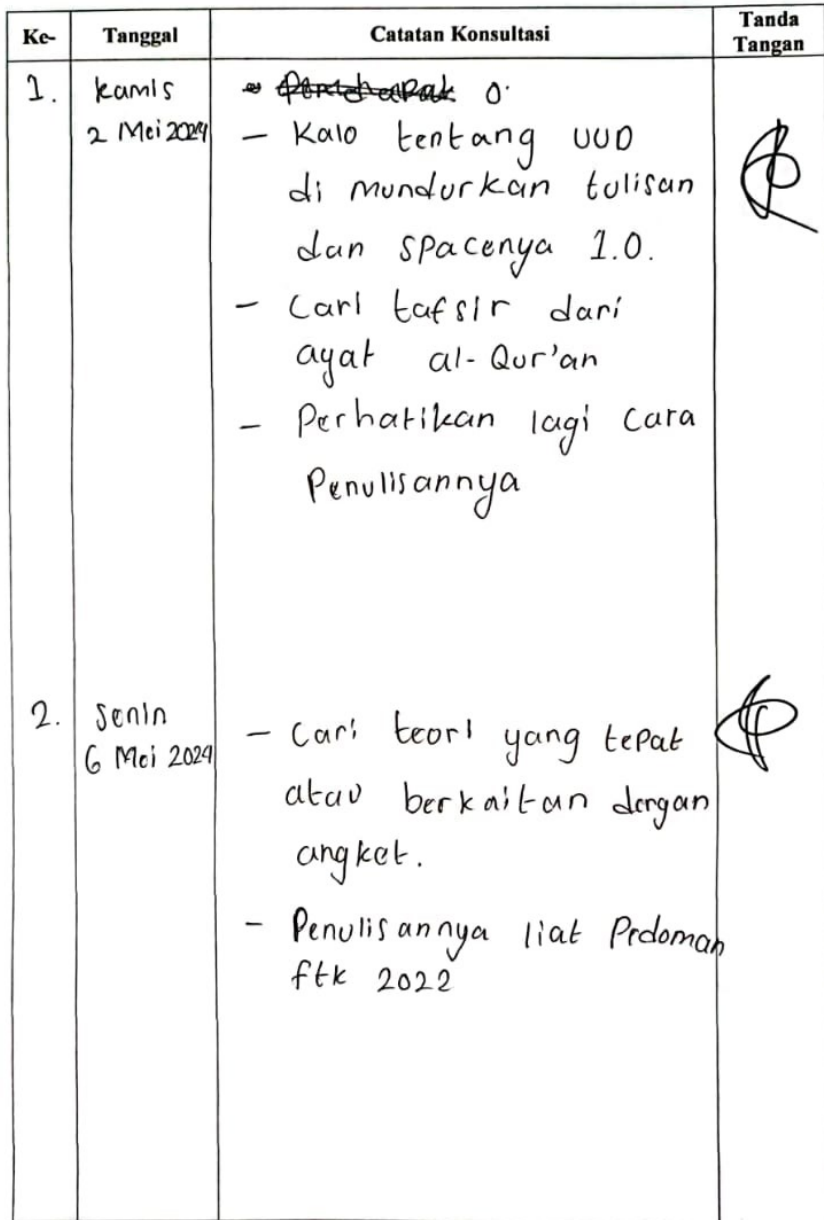 Ke- Tanggal Catatan Konsultasi Tanda Tangan
1. Kamis
2 Mei 2024
- Kalo tentang UUD
di mundurkan tulisan
dan spacenya 1.0.
- Cari tafsir dari
ayat al-Qur'an
- Perhatikan lagi cara
Penulisannya
2. Senin
6 Mei 2024
- Cari teori yang tepat
atau berkaitan dengan
angket.
- Penulisannya liat Pedoman
ftk 2022